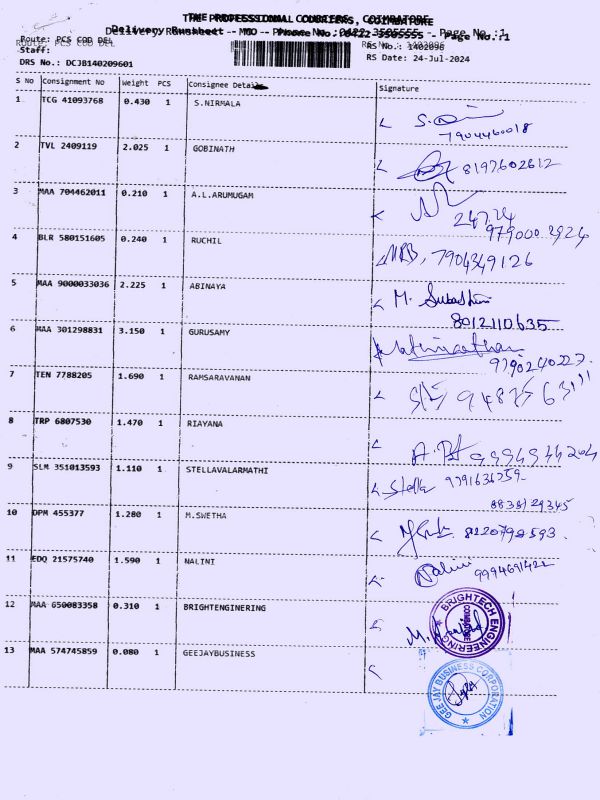 THE PROFESSIONAL COURIERS, COIMBATORE
Delivery Runsheet -- MCO -- Phone No.:0422-3505555 -- Page No.:1
Route: PCS COD DEL RS No.: 1402096
Staff: RS Date: 24-Jul-2024
DRS No.: DCJB140209601
S No Consignment No Weight PCS Consignee Details Signature
1 TCG 41093768 0.430 1 S.NIRMALA
7904460018
2 TVL 2409119 2.025 1 GOBINATH 8197602612
3 MAA 704462011 0.210 1 A.L.ARUMUGAM
24.7.24
979000 2924
4 BLR 580151605 0.240 1 RUCHIL 7904349126
5 MAA 9000033036 2.225 1 ABINAYA M. Subashini
8012110635
6 MAA 301298831 3.150 1 GURUSAMY
9790240227
7 TEN 7788205 1.690 1 RAMSARAVANAN
8 TRP 6807530 1.470 1 RIAYANA
9 SLM 351013593 1.110 1 STELLAVALARMATHI Stella 9791636759
8838129345
10 DPM 455377 1.280 1 M.SWETHA 8220798593
11 EDQ 21575740 1.590 1 NALINI Nalini 9994691422
12 MAA 650083358 0.310 1 BRIGHTENGINERING
BRIGHTECH ENGINEERING COIMBATORE
13 MAA 574745859 0.080 1 GEEJAYBUSINESS
GEE JAY BUSINESS CORPORATION